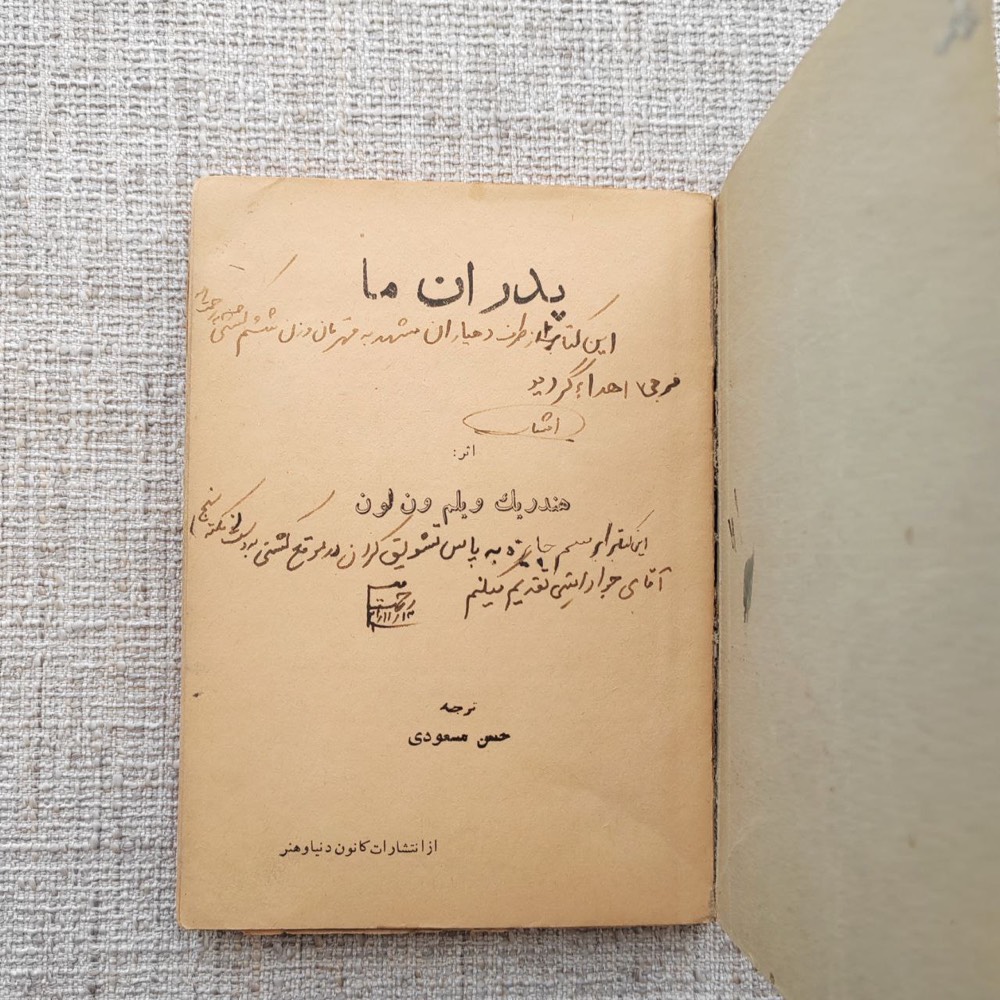 پدران ما
این کتاب از طرف دهیاران مشهد به قهرمان وزن ششم کشتی
فرجی اهداء گردید
اثر:
هندریك ویلم ون لون
این کتاب را برسم جایزه به پاس تشویق کردن در موقع کشتی
آقای جواد تقدیم میکنم
ترجمه
حسن مسعودی
از انتشارات کانون دنیا و هنر